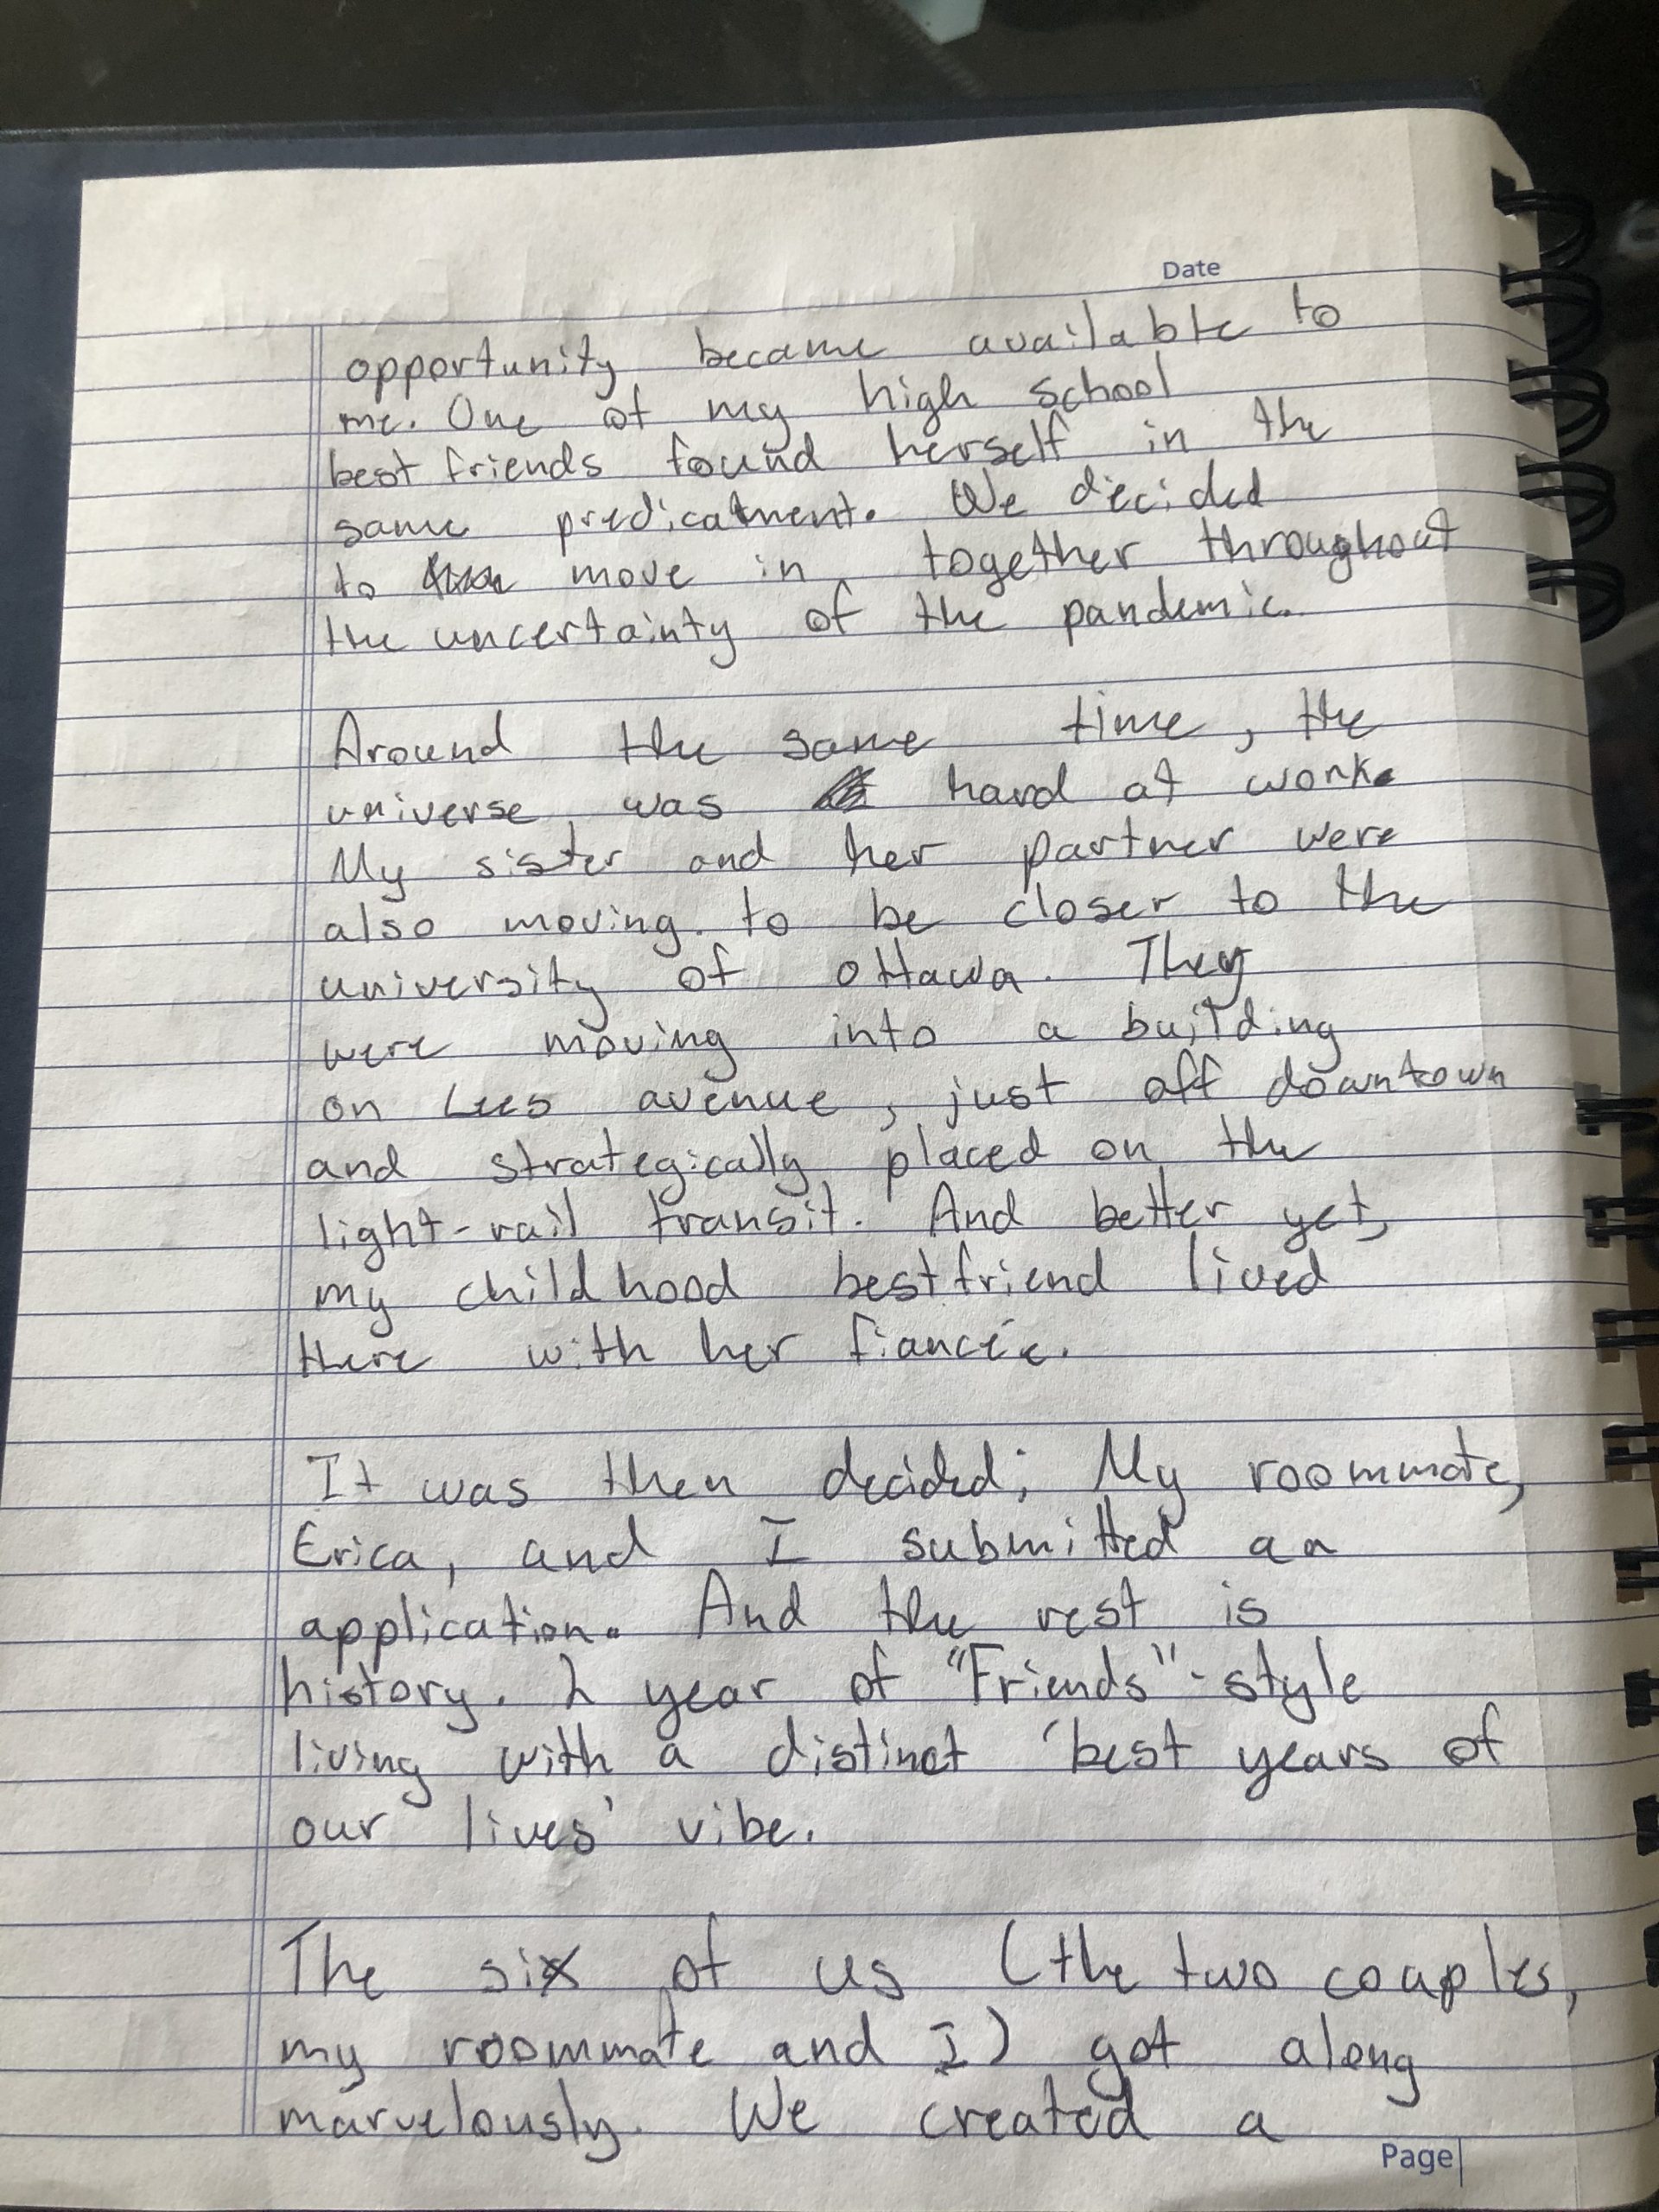 Date
opportunity became available to
me. One of my high school
best friends found herself in the
same predicatment. We decided
to move in together throughout
the uncertainty of the pandemic.
Around the same time, the
universe was hard at work.
My sister and her partner were
also moving to be closer to the
university of ottawa. They
were moving into a building
on Lees avenue, just off downtown
and strategically placed on the
light-rail transit. And better yet,
my childhood bestfriend lived
there with her fiancée.
It was then decided; My roommate,
Erica, and I submitted an
application. And the rest is
history. 2 year of "Friends"-style
living with a distinct 'best years of
our lives' vibe.
The six of us (the two couples,
my roommate and I) got along
marvelously. We created a
Page